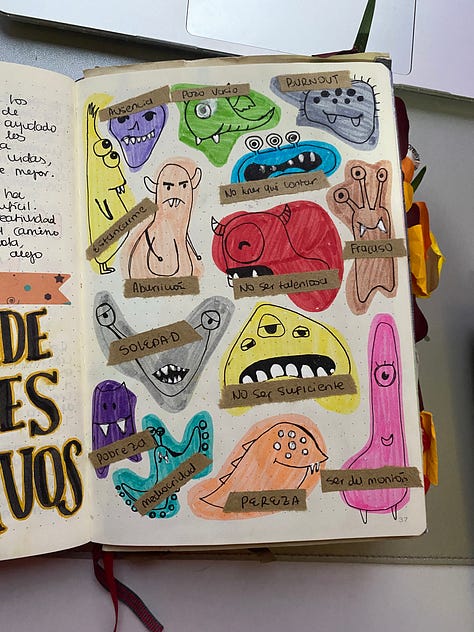 los
de
ayudado
les
a
udas,
e mejor.
ha
fícil.
reatividad
l camino
ola,
dejo
DE
ES
VOS
Ausencia
Pozo Vacío
BURNOUT
Estancarme
No tener qué contar
NO ser talentosa
Fracaso
SOLEDAD
NO ser suficiente
Pobreza
mediocridad
PEREZA
ser del montón
37